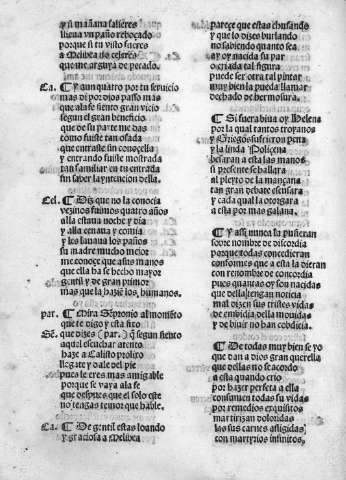 y si mañana salieres
lleua vn paño reboçado
porque si tu visto fueres
a Melibea no celeres
que me arguya de pecado.
Ca. ¶ Y aun quatro por tu seruicio
mas di por dios passo mas
que ala fe siento gran vicio
segun el gran beneficio
que de su parte me das
como fuiste tan osada
que entraste sin conoscella
y entrando fuiste mostrada
tan familiar en tu entrada
sin saber la yntencion della.
Cel. ¶ Diz que no la conocia
vezinos fuimos quatro años
alli estaua noche y dia
y alla cenaua y comia
y les lauaua los paños
su madre mucho mejor
me conoce que a sus manos
que ella se ha hecho mayor
gentil y de gran primor
mas que la hazié los humanos.
par. ¶ Mira Sépronio al mométo
que te digo y esta fito
Sé. que dizes (par.) q̃ segun siento
aquel escuchar atento
haze a Calisto prolixo
llegate y dale del pie
pues le eres mas amigable
porque se vaya ala fe
que despues que el solo este
no tengas temor que hable.
Ca. ¶ De gentil estas loando
y graciosa a Melibea
pareçe que estas chufando
y que lo dizes burlando
no sabiendo quanto sea
ay oy nacida su par
o criada tal figura
puede ser otra tal pintar
muy bien la pueda llamar
dechado de hermosura.
¶ Si fuera biua oy Helena
por la qual tantos troyanos
y Griegos sufrieron pena
y la linda Poliçena
besaran a esta las manos
si presente se hallara
al pleyto de la mançana
tan gran debate escusara
y cada qual la otorgara
a esta por mas galana.
¶ Y assi nunca la pusieran
sobre nombre de discordia
porque todas concedieran
conformes que a esta la dieran
con renombre de concordia
pues quantas oy son nacidas
que della tengan noticia
mal dizen sus tristes vidas
de embidia della mouidas
y de biuir no han cobdicia.
¶ De todas muy bien se yo
que dan a dios gran querella
que dellas no se acordo
a esta quando crio
por hazer perfeta a ella
consumen todas su vidas
por remedios exquisitos
martirizan doloridas
las sus carnes afligidas,
con martyrios infinitos,